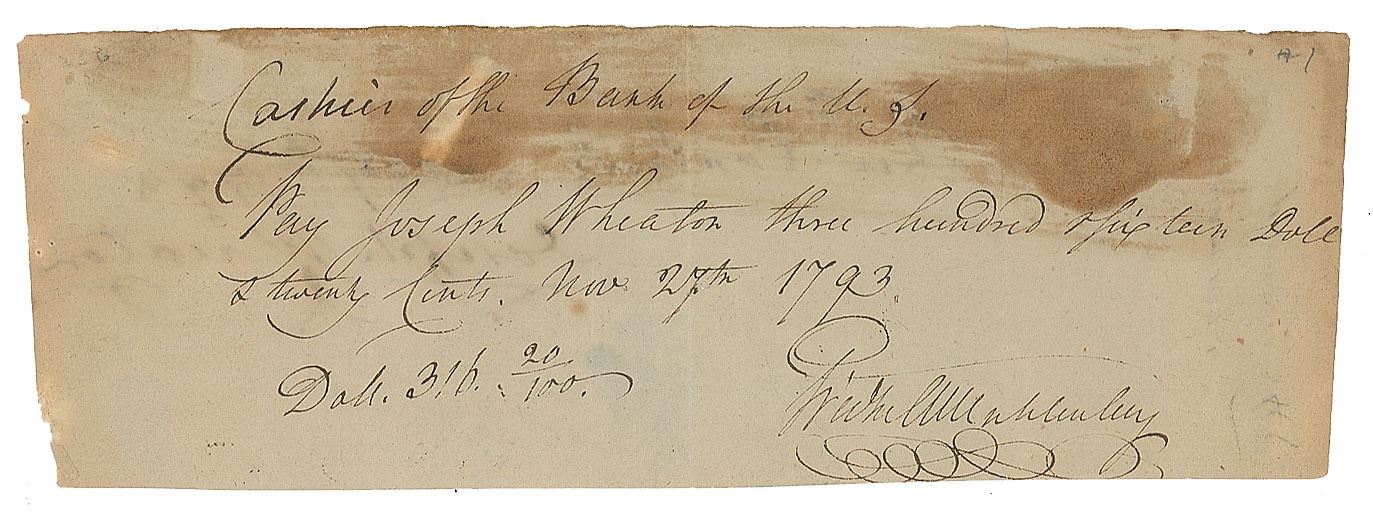 #1
Cashier of the Bank of the U. S.
Pay Joseph Wheaton three hundred & sixteen Doll
& twenty Cents. Nov. 27th 1793
Doll. 316. 20/100.
Fredk A Muhlenberg